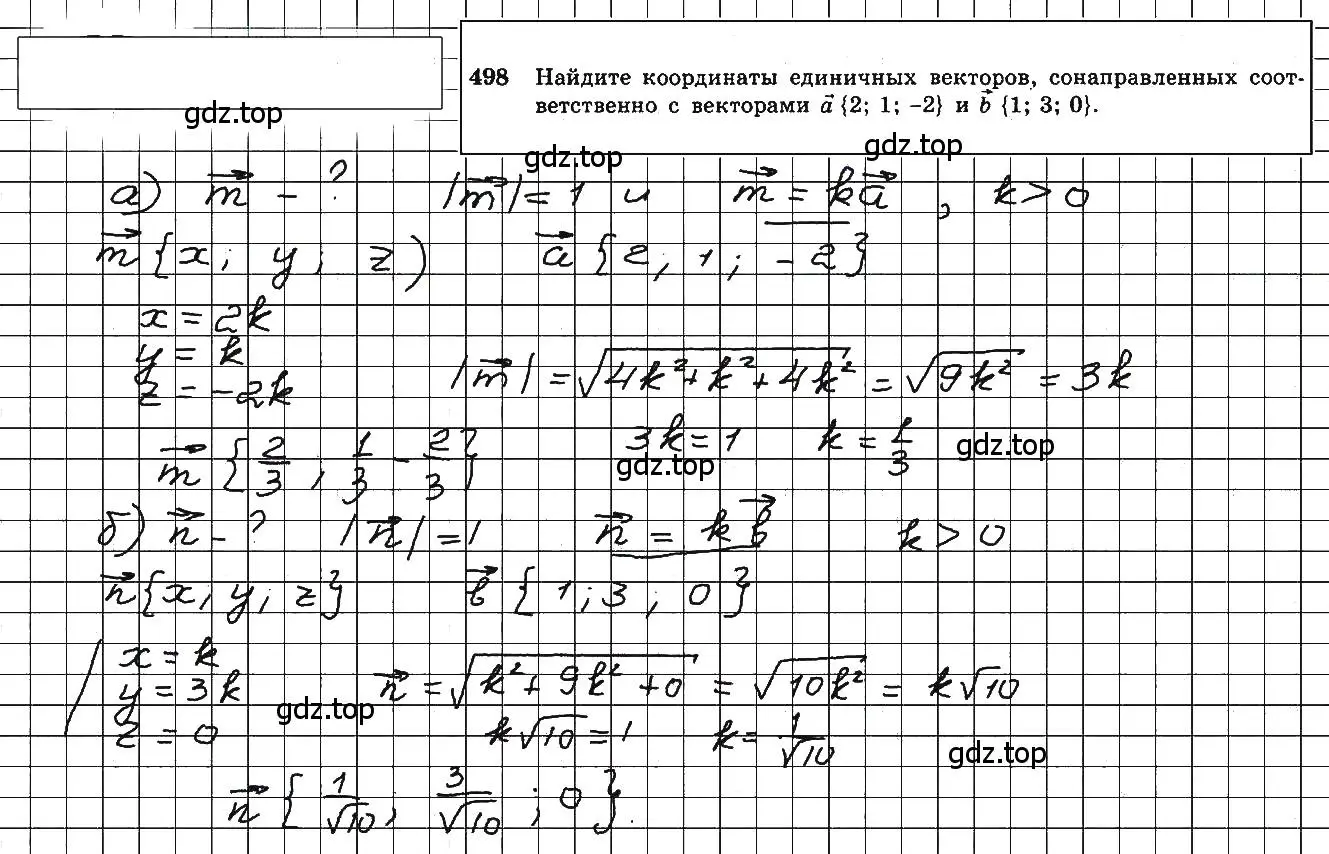 498 Найдите координаты единичных векторов, сонаправленных соот-
ветственно с векторами a⃗ {2; 1; –2} и b⃗ {1; 3; 0}.
gdz.top
gdz.top
gdz.top
а) m⃗ – ? |m⃗| = 1 и m⃗ = ka⃗, k > 0
m⃗ {x; y; z) a⃗ {2, 1; –2}
x = 2k
y = k
z = –2k |m⃗| = √(4k²+k²+4k²) = √(9k²) = 3k
m⃗ {2/3, 1/3 – 2/3} 3k = 1 k = 1/3
gdz.top
gdz.top
б) n⃗ – ? |n⃗| = 1 n⃗ = kb⃗ k > 0
n⃗{x, y; z} b⃗ {1; 3; 0}
x = k
y = 3k n⃗ = √(k²+9k²+0) = √(10k²) = k√10
gdz.top
z = 0 k√10 = 1 k = 1/√10
gdz.top
n⃗ {1/√10; 3/√10; 0}.